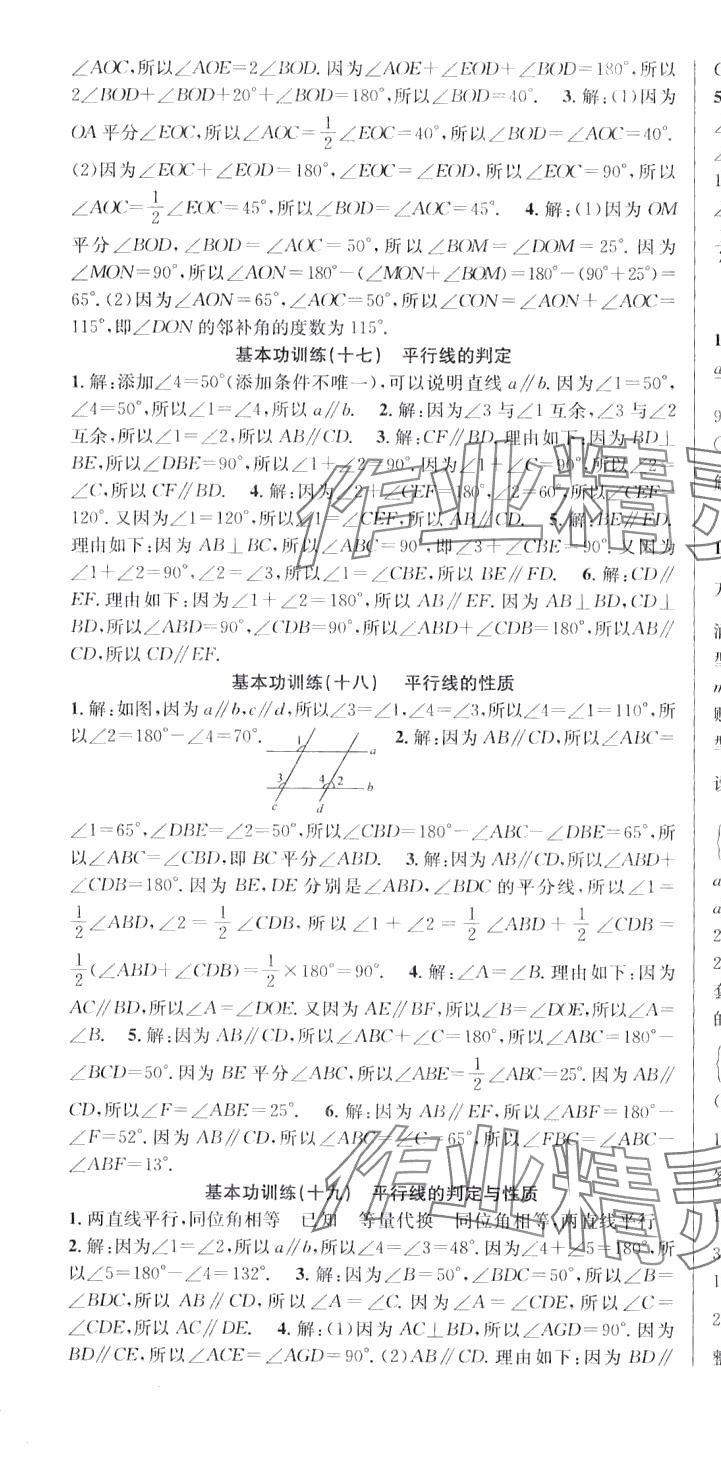 ∠AOC,所以∠AOE=2∠BOD.因为∠AOE+∠EOD+∠BOD=180°,所以
2∠BOD+∠BOD+20°+∠BOD=180°,所以∠BOD=40°. 3.解:(1)因为
OA平分∠EOC,所以∠AOC=1/2∠EOC=40°,所以∠BOD=∠AOC=40°.
(2)因为∠EOC+∠EOD=180°,∠EOC=∠EOD,所以∠EOC=90°,所以
∠AOC=1/2∠EOC=45°,所以∠BOD=∠AOC=45°. 4.解:(1)因为OM
平分∠BOD,∠BOD=∠AOC=50°,所以∠BOM=∠DOM=25°.因为
∠MON=90°,所以∠AON=180°-(∠MON+∠BOM)=180°-(90°+25°)=
65°.(2)因为∠AON=65°,∠AOC=50°,所以∠CON=∠AON+∠AOC=
115°,即∠DON的邻补角的度数为115°.
基本功训练(十七) 平行线的判定
1.解:添加∠4=50°(添加条件不唯一),可以说明直线a∥b.因为∠1=50°,
∠4=50°,所以∠1=∠4,所以a∥b. 2.解:因为∠3与∠1互余,∠3与∠2
互余,所以∠1=∠2,所以AB∥CD. 3.解:CF∥BD.理由如下:因为BD⊥
BE,所以∠DBE=90°,所以∠1+∠2=90°.因为∠1+∠C=90°,所以∠2=
∠C,所以CF∥BD. 4.解:因为∠2+∠CEF=180°,∠2=60°,所以∠CEF=
120°.又因为∠1=120°,所以∠1=∠CEF,所以AB∥CD. 5.解:BE∥FD.
理由如下:因为AB⊥BC,所以∠ABC=90°,即∠3+∠CBE=90°.又因为
∠1+∠2=90°,∠2=∠3,所以∠1=∠CBE,所以BE∥FD. 6.解:CD∥
EF.理由如下:因为∠A=∠1,所以AB∥EF.因为AB⊥BD,CD⊥
BD,所以∠ABD=90°,∠CDB=90°,所以∠ABD+∠CDB=180°,所以AB∥
CD,所以CD∥EF.
基本功训练(十八) 平行线的性质
1.解:如图,因为a∥b,c∥d,所以∠3=∠1,∠4=∠3,所以∠4=∠1=110°,所
以∠2=180°-∠4=70°. 2.解:因为AB∥CD,所以∠ABC=
1
a
3
4
2
b
c
d
∠1=65°,∠DBE=∠2=50°,所以∠CBD=180°-∠ABC-∠DBE=65°,所
以∠ABC=∠CBD,即BC平分∠ABD. 3.解:因为AB∥CD,所以∠ABD+
∠CDB=180°.因为BE,DE分别是∠ABD,∠BDC的平分线,所以∠1=
1/2∠ABD,∠2=1/2∠CDB,所以∠1+∠2=1/2∠ABD+1/2∠CDB=
1/2(∠ABD+∠CDB)=1/2×180°=90°. 4.解:∠A=∠B.理由如下:因为
AC∥BD,所以∠A=∠DOE.又因为AE∥BF,所以∠B=∠DOE,所以∠A=
∠B. 5.解:因为AB∥CD,所以∠ABC+∠C=180°,所以∠ABC=180°-
∠BCD=50°.因为BE平分∠ABC,所以∠ABE=1/2∠ABC=25°.因为AB∥
CD,所以∠F=∠ABE=25°. 6.解:因为AB∥EF,所以∠ABF=180°-
∠F=52°.因为AB∥CD,所以∠ABC=∠C=65°,所以∠CBF=∠ABC-
∠ABF=13°.
基本功训练(十九) 平行线的判定与性质
1.两直线平行,同位角相等 已知 等量代换 同位角相等,两直线平行
2.解:因为∠1=∠2,所以a∥b,所以∠4=∠3=48°.因为∠4+∠5=180°,所
以∠5=180°-∠4=132°. 3.解:因为∠B=50°,∠BDC=50°,所以∠B=
∠BDC,所以AB∥CD,所以∠A=∠C.因为∠A=∠CDE,所以∠C=
∠CDE,所以AC∥DE. 4.解:(1)因为AC⊥BD,所以∠AGD=90°.因为
BD∥CE,所以∠ACE=∠AGD=90°.(2)AB∥CD.理由如下:因为BD∥
作业精灵
作业精灵